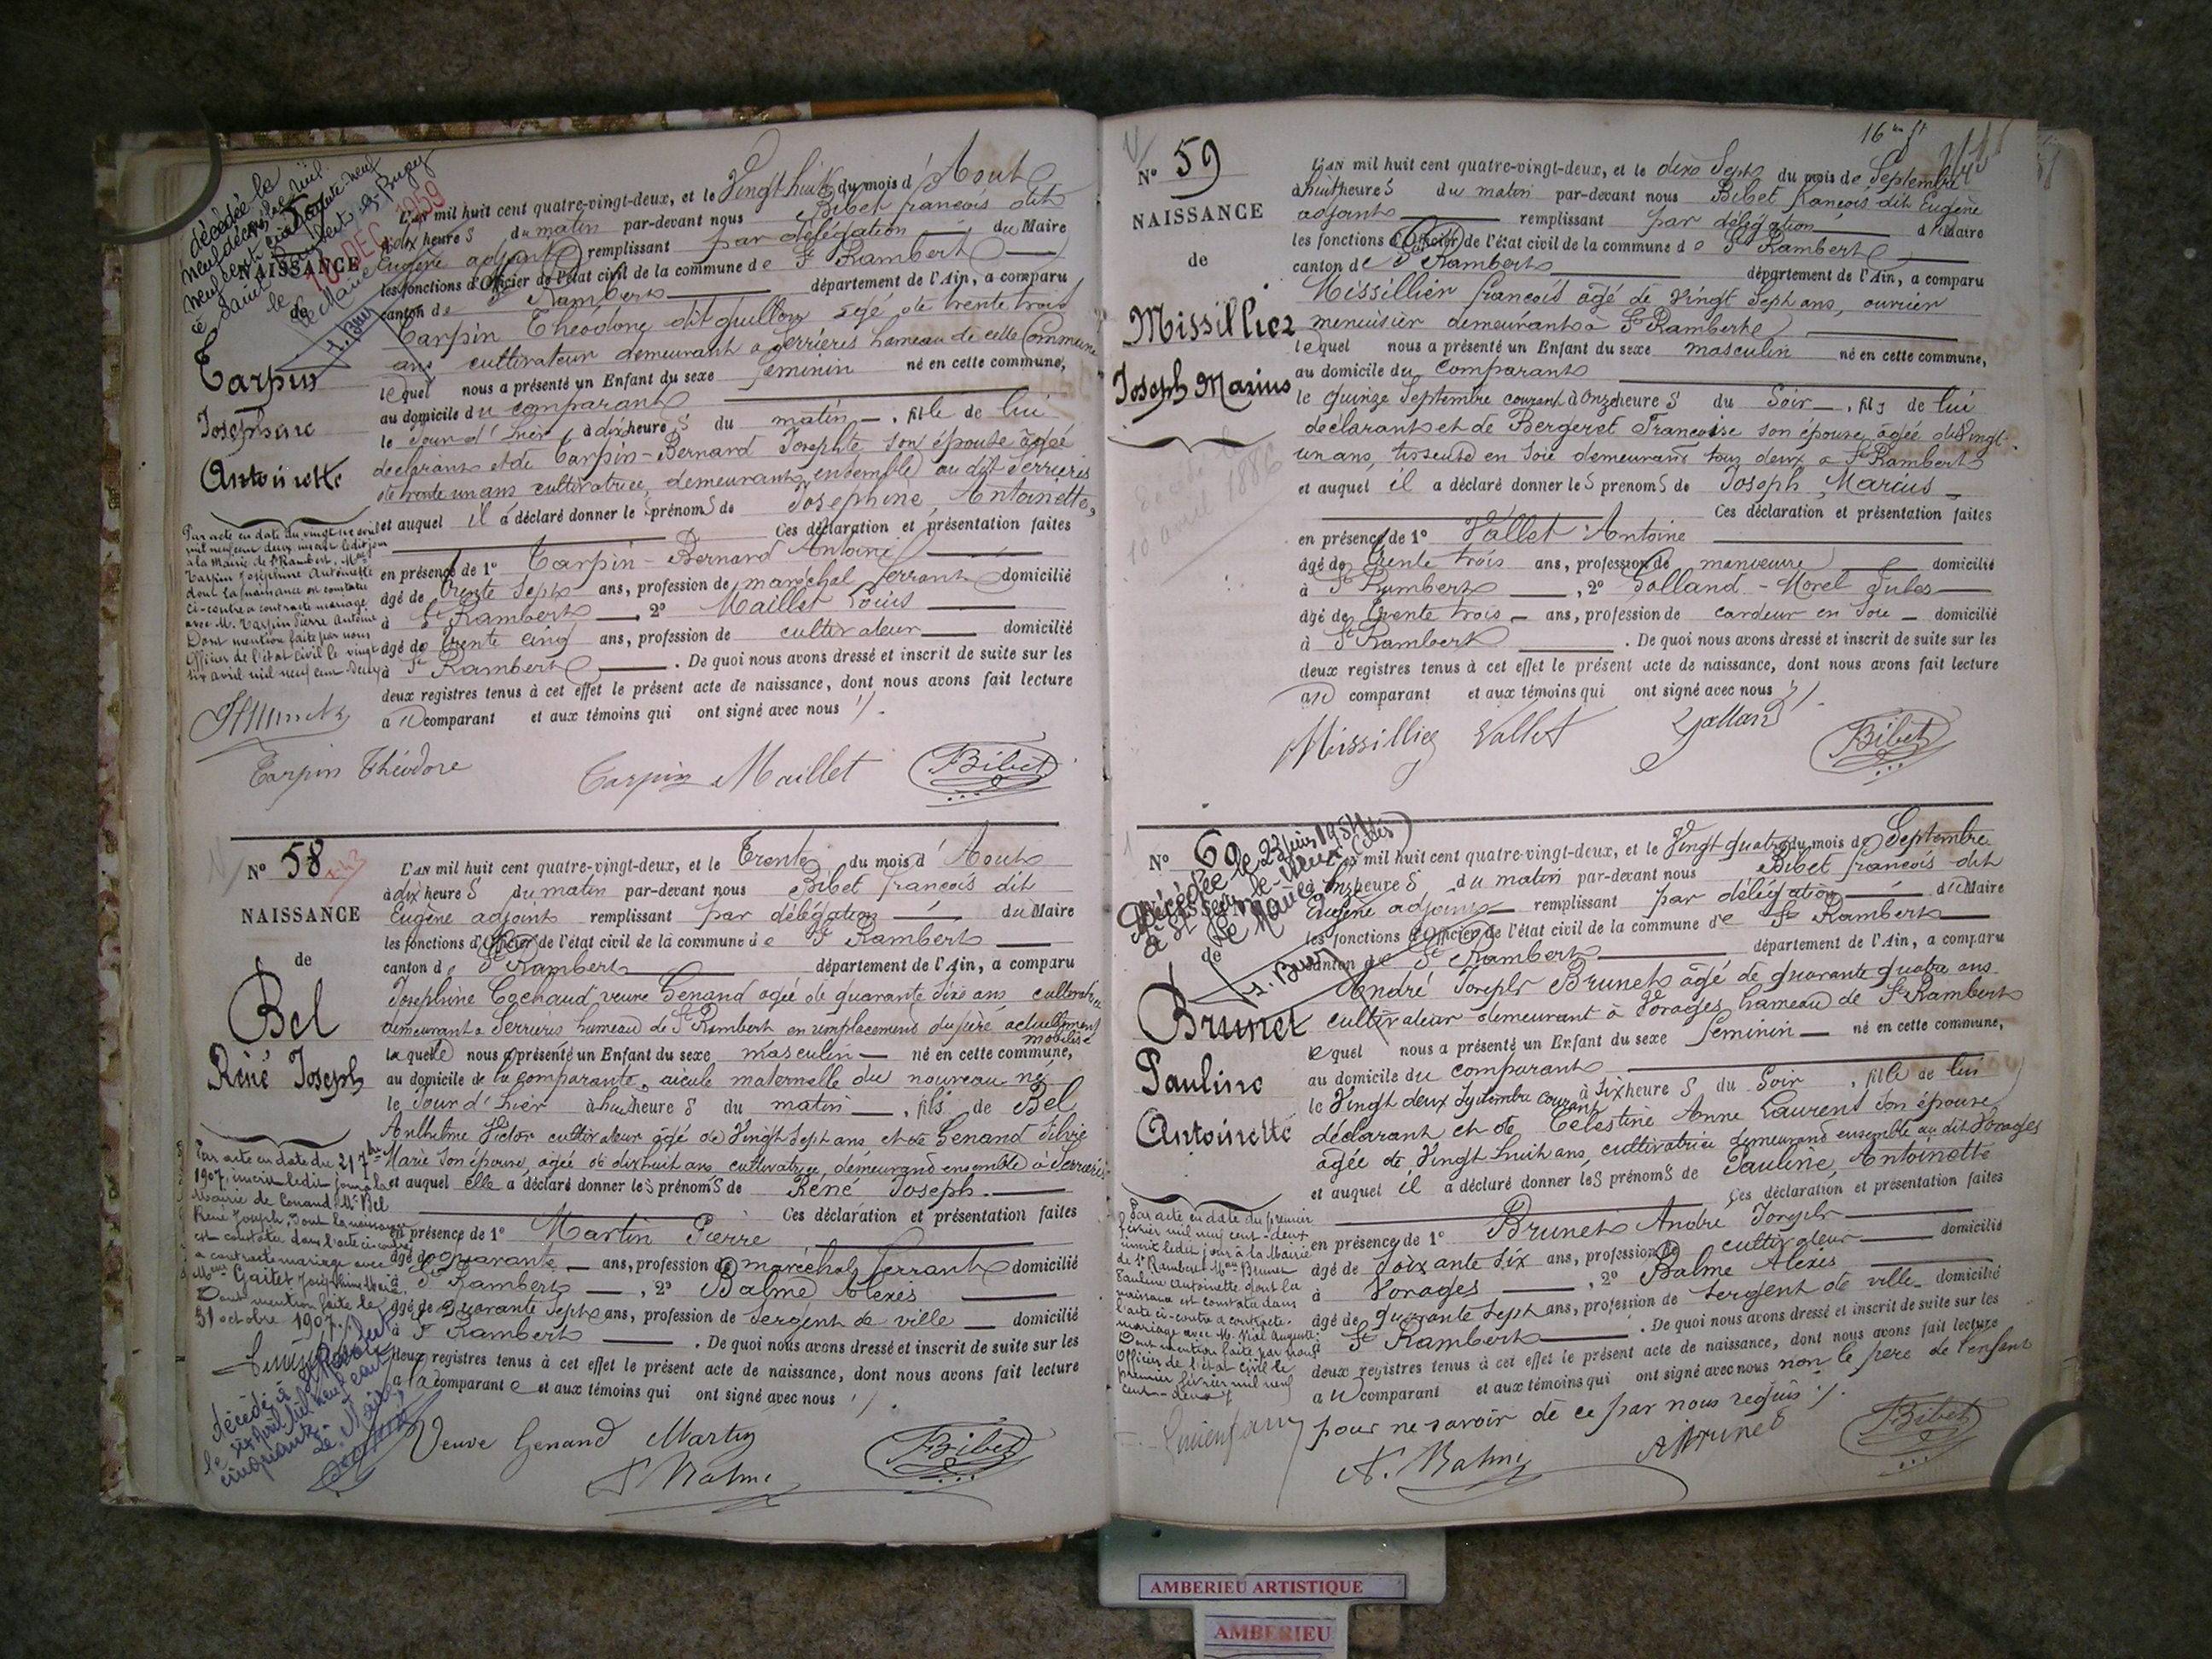 décédée le
neuf décembre mil
neuf cent cinquante neuf
à Saint Rambert-en-Bugey
le 10 DEC. 1959
le Maire
NAISSANCE
de
Tarpin
Joséphine
Antoinette
L'AN mil huit cent quatre-vingt-deux, et le Vingt huit du mois d'Aout
à dix heures du matin par-devant nous Bibet françois dit
Eugène adjoint remplissant par délégation du Maire
les fonctions d'Officier de l'état civil de la commune de St Rambert
canton de St Rambert département de l'Ain, a comparu
Tarpin Théodore dit guillon âgé de trente trois
ans cultivateur demeurant à Serrières hameau de cette Commune
lequel nous a présenté un Enfant du sexe féminin né en cette commune,
au domicile du comparant
le Jour d'hier à dix heures du matin, fille de lui
déclarant et de Tarpin-Bernard Josephte son épouse âgée
de trente un ans cultivatrice, demeurant ensemble au dit Serrières
et auquel il a déclaré donner les prénoms de Joséphine, Antoinette,
Ces déclaration et présentation faites
en présence de 1° Tarpin-Bernard Antoine
âgé de trente sept ans, profession de maréchal ferrant domicilié
à St Rambert, 2° Maillet Louis
âgé de trente cinq ans, profession de cultivateur domicilié
à St Rambert. De quoi nous avons dressé et inscrit de suite sur les
deux registres tenus à cet effet le présent acte de naissance, dont nous avons fait lecture
au comparant et aux témoins qui ont signé avec nous
Par acte en date du vingt six avril
mil neuf cent deux inscrit ledit jour
à la Mairie de St Rambert, Melle
Tarpin Joséphine Antoinette
dont la naissance est constatée
ci-contre a contracté mariage
avec M. Tarpin Pierre Antoine
Dont mention faite par nous
Officier de l'état civil le vingt
six avril mil neuf cent deux
Tarpin Théodore Tarpin Maillet FBibet
N° 58
NAISSANCE
de
Bel
René Joseph
L'AN mil huit cent quatre-vingt-deux, et le Trente du mois d'Aout
à dix heures du matin par-devant nous Bibet françois dit
Eugène adjoint remplissant par délégation du Maire
les fonctions d'Officier de l'état civil de la commune de St Rambert
canton de St Rambert département de l'Ain, a comparu
Joséphine Cochaud veuve Genand agée de quarante six ans cultivatrice
demeurant à Serrières hameau de St Rambert en remplacement du père actuellement
mobilisé
laquelle nous a présenté un Enfant du sexe masculin né en cette commune,
au domicile de la comparante, aieule maternelle du nouveau né
le Jour d'hier à huit heures du matin, fils de Bel
Anthelme Victor cultivateur âgé de Vingt sept ans et de Genand Silvie
Marie son épouse, agée de dix huit ans cultivatrice, demeurand ensemble à Serrières
et auquel elle a déclaré donner les prénoms de René Joseph.
Ces déclaration et présentation faites
en présence de 1° Martin Pierre
âgé de Quarante ans, profession de maréchal ferrant domicilié
à St Rambert, 2° Balme Alexis
âgé de Quarante Sept ans, profession de Sergent de ville domicilié
à St Rambert. De quoi nous avons dressé et inscrit de suite sur les
deux registres tenus à cet effet le présent acte de naissance, dont nous avons fait lecture
à la comparante et aux témoins qui ont signé avec nous
Par acte en date du 21 7bre
1907, inscrit ledit jour à la
Mairie de Conand, Mr Bel
René Joseph, dont la naissance
est constatée dans l'acte ci-contre
a contracté mariage avec
Melle Gaitet Joséphine Marie.
Dont mention faite le
31 octobre 1907.
décédé à
le
cinquante.
Le Maire,
Veuve Genand Martin
A. Balme FBibet
16me ft
N° 59
NAISSANCE
de
Missillier
Joseph Marius
décédé le
10 avril 1886
L'AN mil huit cent quatre-vingt-deux, et le dix Sept du mois de Septembre
à huit heures du matin par-devant nous Bibet françois dit Eugène
adjoint remplissant par délégation du Maire
les fonctions d'Officier de l'état civil de la commune de St Rambert
canton de St Rambert département de l'Ain, a comparu
Missillier françois âgé de Vingt Sept ans, ouvrier
menuisier demeurant à St Rambert
lequel nous a présenté un Enfant du sexe masculin né en cette commune,
au domicile du Comparant
le Quinze Septembre courant à Onze heures du Soir, fils de lui
déclarant et de Bergeret Françoise son épouse, âgée de Vingt
un ans, tisseuse en Soie demeurant tous deux à St Rambert
et auquel il a déclaré donner les prénoms de Joseph, Marius
Ces déclaration et présentation faites
en présence de 1° Vallet Antoine
âgé de Trente trois ans, profession de manœuvre domicilié
à St Rambert, 2° Golland-Morel Jules
âgé de Trente trois ans, profession de cardeur en Soie domicilié
à St Rambert. De quoi nous avons dressé et inscrit de suite sur les
deux registres tenus à cet effet le présent acte de naissance, dont nous avons fait lecture
au comparant et aux témoins qui ont signé avec nous
Missillier Vallet Golland FBibet
N° 60
Décédée le 23 juin 1954
à St Jean-le-Vieux
Le Maire
de
Brunet
Pauline
Antoinette
L'AN mil huit cent quatre-vingt-deux, et le Vingt quatre du mois de Septembre
à Onze heures du matin par-devant nous Bibet françois dit
Eugène adjoint remplissant par délégation du Maire
les fonctions d'Officier de l'état civil de la commune de St Rambert
canton de St Rambert département de l'Ain, a comparu
André Joseph Brunet âgé de quarante quatre ans
cultivateur demeurant à Vorages, hameau de St Rambert
lequel nous a présenté un Enfant du sexe féminin né en cette commune,
au domicile du comparant
le Vingt deux Septembre courant à Six heures du Soir, fille de lui
déclarant et de Célestine Anne Laurent son épouse
agée de Vingt huit ans, cultivatrice demeurand ensemble au dit Vorages
et auquel il a déclaré donner les prénoms de Pauline, Antoinette
Ces déclaration et présentation faites
en présence de 1° Brunet André Joseph domicilié
âgé de Soixante Six ans, profession de cultivateur
à Vorages, 2° Balme Alexis
âgé de quarante Sept ans, profession de Sergent de ville domicilié
à St Rambert. De quoi nous avons dressé et inscrit de suite sur les
deux registres tenus à cet effet le présent acte de naissance, dont nous avons fait lecture
au comparant et aux témoins qui ont signé avec nous non le père de l'enfant
pour ne savoir de ce par nous requis
Par acte en date du premier
février mil neuf cent-deux
inscrit ledit jour à la Mairie
de St Rambert Melle Brunet
Pauline Antoinette dont la
naissance est constatée dans
l'acte ci-contre a contracté
mariage avec M. Auguste
Dont mention faite par nous
Officier de l'état civil le
premier février mil neuf
cent-deux
A. Balme ABrunet FBibet
AMBERIEU ARTISTIQUE
AMBERIEU